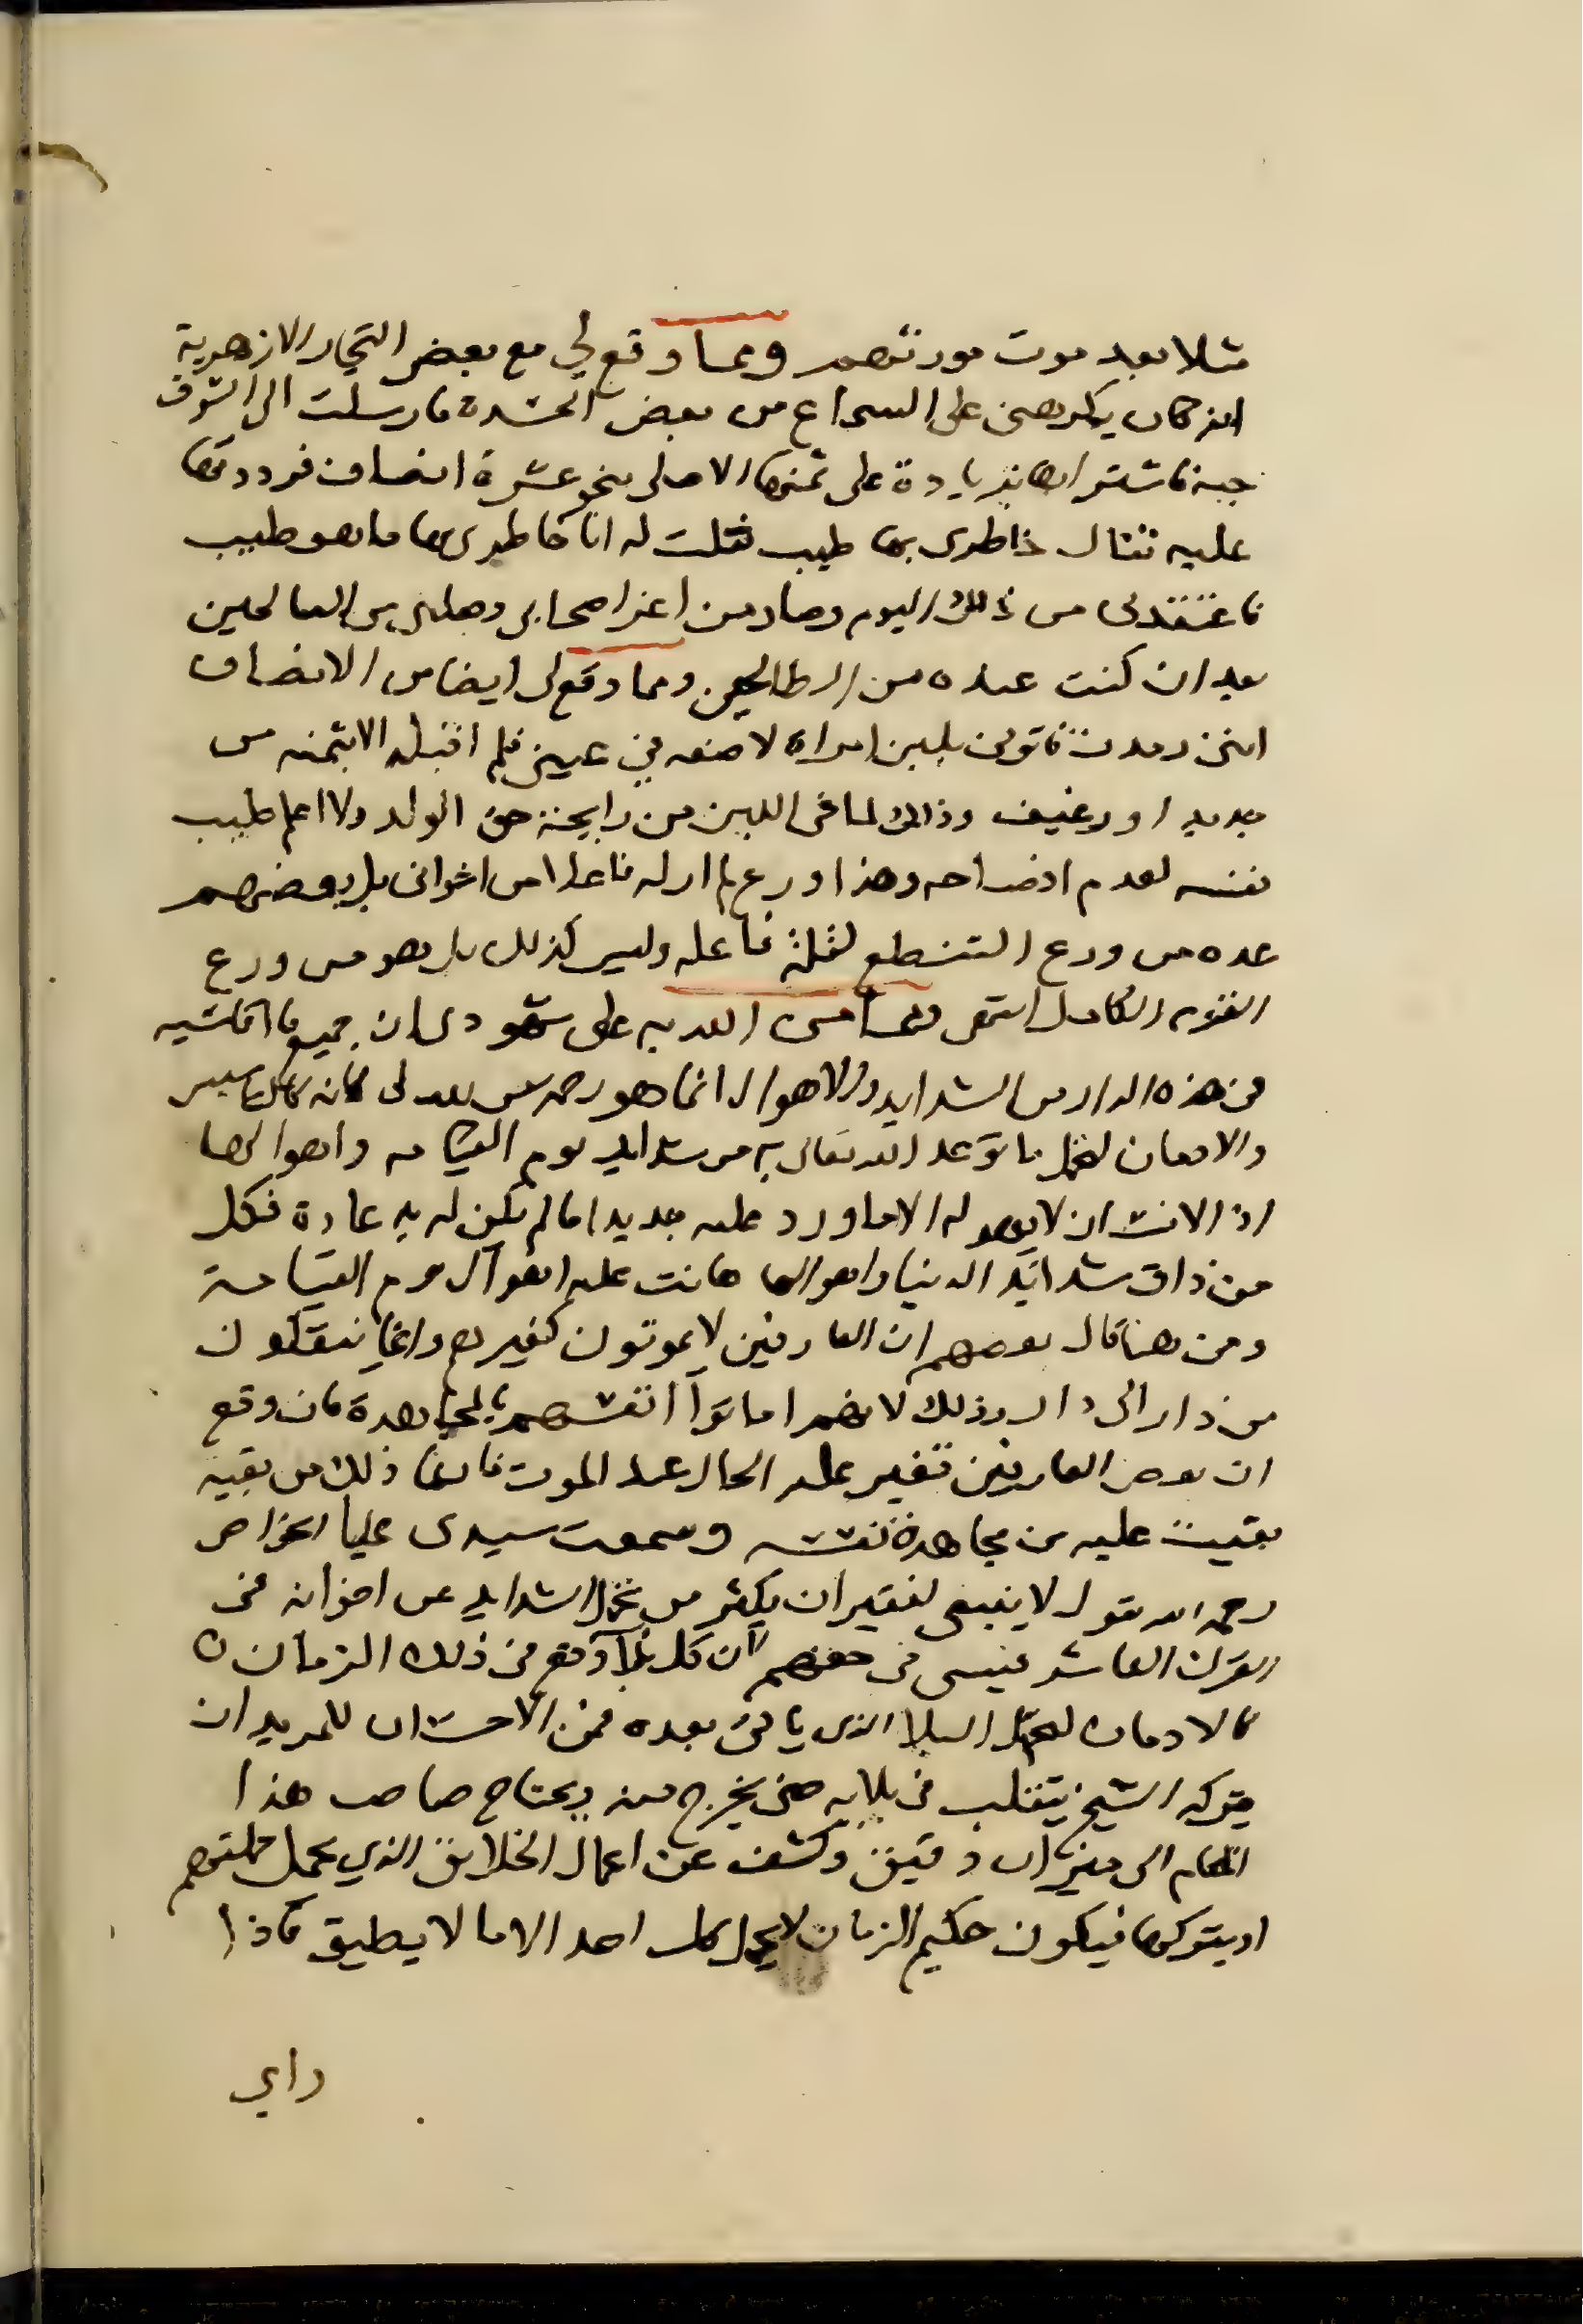 مثلا بعد موت مورثهم ومما وقع لي مع بعض التجار الازهرية
انه كان يكرهني على السماع من بعض الحسدة فارسلت الى السوق
جبة فاشتراها بزيادة على ثمنها الاصلى نحو عشرة انصاف فرددتها
عليه فقال خاطرى بها طيب فقلت له انا خاطرى بها ما هو طيب
فاعتقدنى من ذلك اليوم وصار من اعز اصحابى وجعلنى من الصالحين
بعد ان كنت عنده من الطالحين ومما وقع لى ايضا من الانصاف
اننى رمدت فاتونى بلبن امراة لاضعه في عينى فلم اقبله الا بثمنه من
جديد او رغيف وذلك لما فى اللبن من رايحة حق الولد ولا اعلم طيب
نفسه لعدم افصاحه وهذا ورع لم ار له فاعلا من اخوانى بل بعضهم
عده من ورع التنطع لقلة فاعله وليس كذلك بل هو من ورع
القوم الكامل انتهى ومما من الله به على شهودى ان جميع ما اقاسيه
فى هذه الدار من الشدايد والاهوال انما هو رحمة من الله لى فانه كالتاسيس
والادمان لتحمل ما توعد الله تعالى به من شدايد يوم القيامه واهوالها
اذ الانسان لا يهوله الا ما ورد عليه جديدا ما لم يكن له به عادة فكل
من ذاق شدائد الدنيا واهوالها هانت عليه اهوال يوم القيامة
ومن هنا قال بعضهم ان العارفين لا يموتون كغيرهم وانما ينقلون
من دار الى دار وذلك لانهم اماتوا انفسهم بالمجاهدة فان وقع
ان بعض العارفين تغير عليه الحال عند الموت فانما ذلك من بقية
بقيت عليه من مجاهدة نفسه وسمعت سيدى عليا الخواص
رحمه الله يقول لا ينبغى لفقير ان يكثر من تحمل الشدايد عن اخوانه فى
القرن العاشر فيسى فى حقهم لان كل بلاء وقع فى ذلك الزمان
كالادمان لتحمل البلا الذى ياتى بعده فمن الاحسان للمريد ان
يتركه الشيخ يتقلب فى بلايه حتى يخرج منه ويحتاج صاحب هذا
المقام الى ميزان دقيق وكشف عن اعمال الخلايق الذي يحمل حملتهم
او يتركها فيكون حكيم الزمان لا يحمل عن احد الا ما لا يطيق فاذا
راي